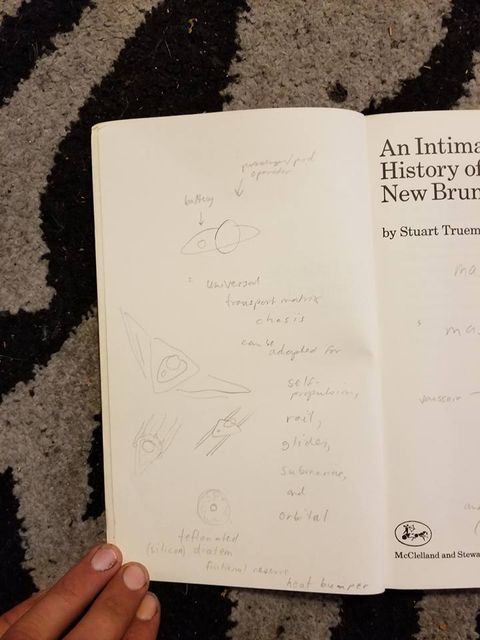 passenger/pod
operator
battery
universal
transport matrix
chasis
can be
adapted for
self-
propulsion,
rail,
glider,
submarine,
and
orbital
teflonated
(silicon) diatom
frictional
heat bumper
An Intima
History of
New Brun
by Stuart Truem
ma
ma
McClelland and Stewa